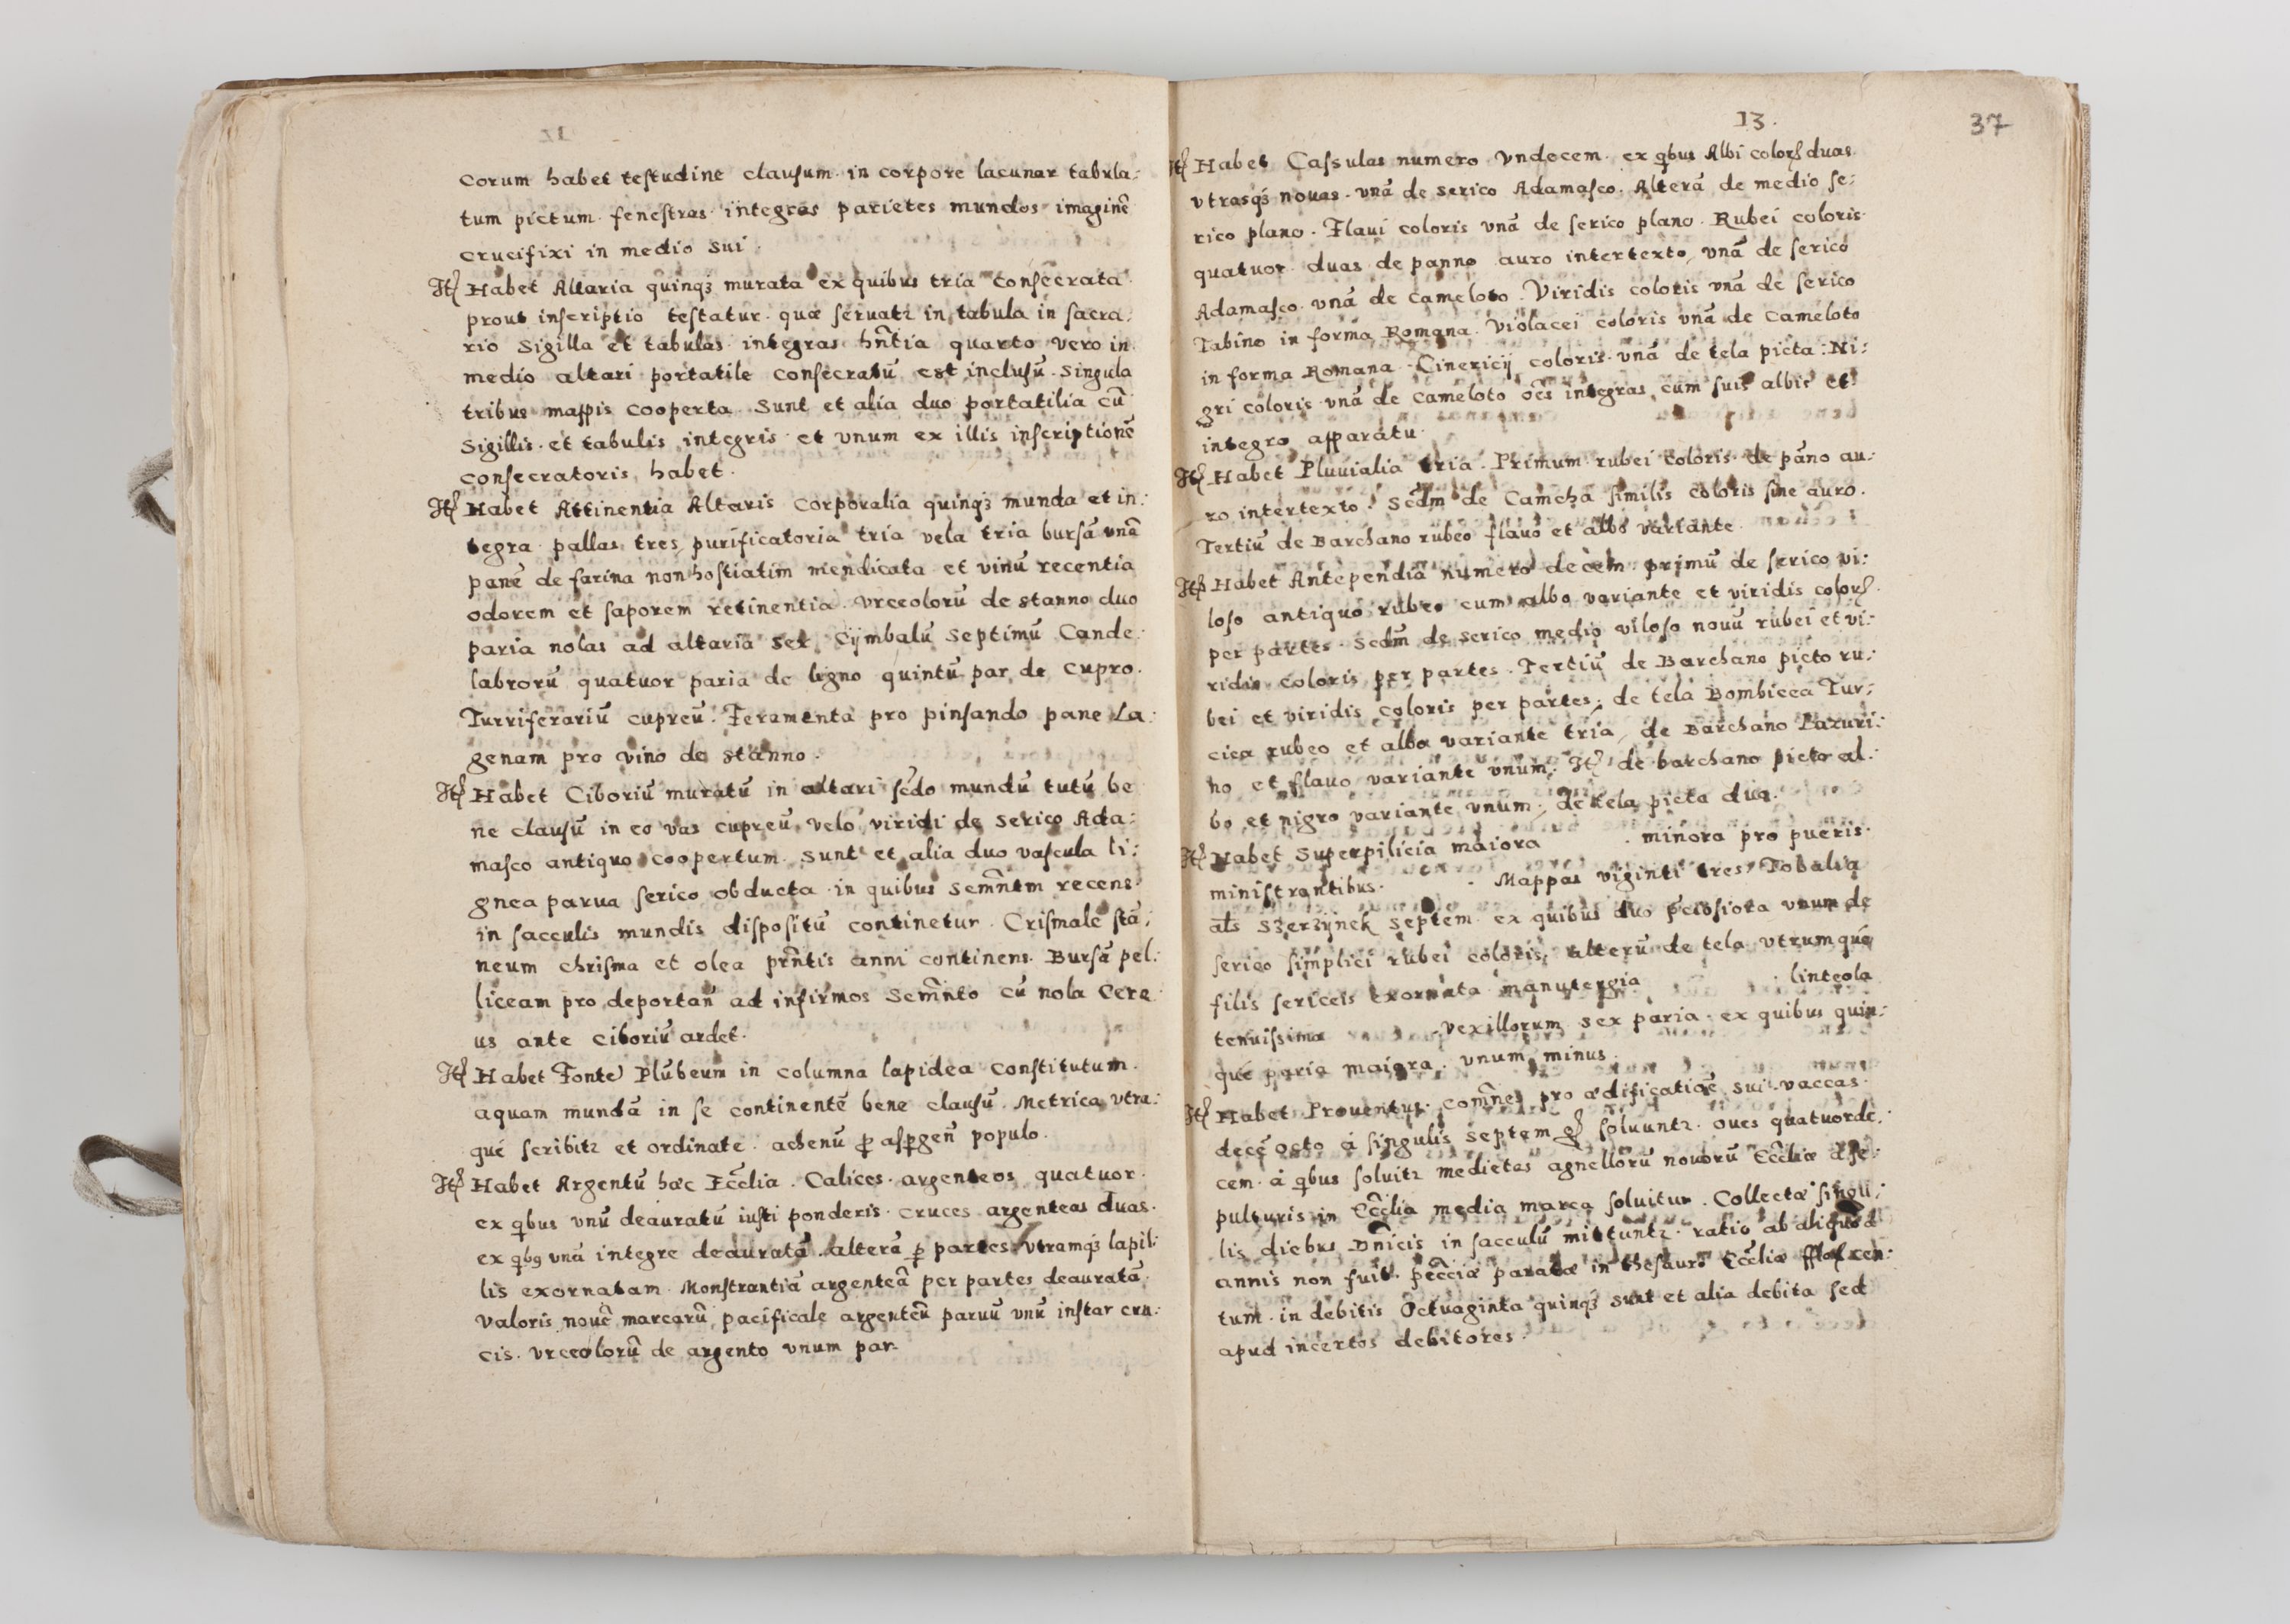 corum habet testudine clausum in corpore lacunar tabula:
tum pictum fenestras integras parietes mundos imaginē
crucifixi in medio sui
Itē Habet Altaria quinqʒ murata ex quibus tria consecrata
prout inscriptio testatur quæ seruatr in tabula in sacra:
rio Sigilla et tabulas integras hñtia quarto vero in
medio altari portatile consecratū est inclusū. Singula
tribus mappis cooperta. Sunt et alia duo portatilia cū
Sigillis et tabulis integris et vnum ex illis inscriptionē
consecratoris habet.
Itē Habet Attinentia Altaris Corporalia quinqʒ munda et in:
tegra pallas tres purificatoria tria vela tria bursā vnā
panē de farina non hostiatim mendicata et vinū recentia
odorem et saporem retinentia. vrceolorū de stanno duo
paria nolas ad altaria sex Cijmbalū septimū Cande:
labrorū quatuor paria de ligno quintū par de cupro.
Turriferariū cupreū. Feramenta pro pinsando pane La:
genam pro vino de stanno.
Itē Habet Ciboriū muratū in altari sēdo mundū tutū be
ne clausū in eo vas cupreū velo viridi de serico Ada:
masco antiquo coopertum. Sunt et alia duo vascula li:
gnea parua serico obducta in quibus Semñtm recens
in sacculis mundis dispositū continetur. Crismale stā:
neum chrisma et olea prñtis anni continens. Bursā pel:
liceam pro deportañ ad infirmos Semñto cū nola Cere
us ante ciboriū ardet.
Itē Habet Fontē Plūbeum in columna lapidea constitutum.
aquam mundā in se continentē bene clausū. Metrica vtra:
què scribitr et ordinate. achenū p aspgeñ populo.
Itē Habet Argentū hæc Ecclia. Calices argenteos quatuor
ex qbus vnū deauratū iusti ponderis. cruces argenteas duas.
ex qbꝫ vnā integre deauratā. alterā p partes vtramqʒ lapil:
lis exornatam. Monstrantiā argenteā per partes deauratā
valoris nouē marcarū, pacificale argenteū paruū vnū instar cru:
cis. vrceolorū de argento vnum par
13.
37
Itē Habet Casulas numero vndecem ex qbus Albi colorꝭ duas
vtrasqʒ nouas. vnā de serico Adamasco. Alterā de medio se:
rico plano. Flaui coloris vnā de serico plano. Rubei coloris
quatuor duas de panno auro intertexto, vnā de serico
Adamasco. vnā de cameloto. Viridis coloris vnā de serico
Tabino in forma Romana. Violacei coloris vnā de cameloto
in forma Romana. Cinericij coloris vnā de tela picta. Ni:
gri coloris vnā de cameloto oēs integras cum suis albis et
integro apparatu.
Itē Habet Pluuialia tria. Primum rubei coloris de pāno au:
ro intertexto. Scdm de Camcha similis coloris sine auro.
Tertiū de Barchano rubeo flauo et albo variante.
Itē Habet Antependia numero decem primū de serico vi:
loso antiquo rubeo cum albo variante et viridis colorꝭ.
per partes. Scdm de serico medio viloso nouū rubei et vi:
ridis coloris per partes. Tertiū de Barchano picto ru:
bei et viridis coloris per partes; de tela Bombicea Tur:
cica rubeo et albo variante tria, de Barchano Lazuri:
no et flauo variante vnum. Itē de barchano picto al:
bo et nigro variante vnum; de tela picta dua.
Itē Habet Superpilicia maiora . minora pro pueris
ministrantibus. . Mappas viginti tres Tobalia
als Szerzijnek septem ex quibus duo vnum de
serico simplici rubei coloris, alterū de tela vtrumquè
filis sericeis exornata manutergia . linteola
tenuissima vexillorum sex paria. ex quibus quin:
què paria maiora. vnum minus.
Itē Habet Prouentus coṁnes pro ædificatiōe sui vaccas
decē octo à singulis septem gꝭ soluuntr. oues quatuorde:
cem à qbus soluitr medietas agnellorū nouorū Ecclīæ à se:
pulturis in Ecclīa media marca soluitur. Collectæ singu:
lis diebus Dñicis in sacculū mittuntr. ratio ab aliquod
annis non fuit. peccīæ paratæ in thesauro Ecclīæ cen:
tum. in debitis Octuaginta quinqʒ sunt et alia debita sed
apud incertos debitores.